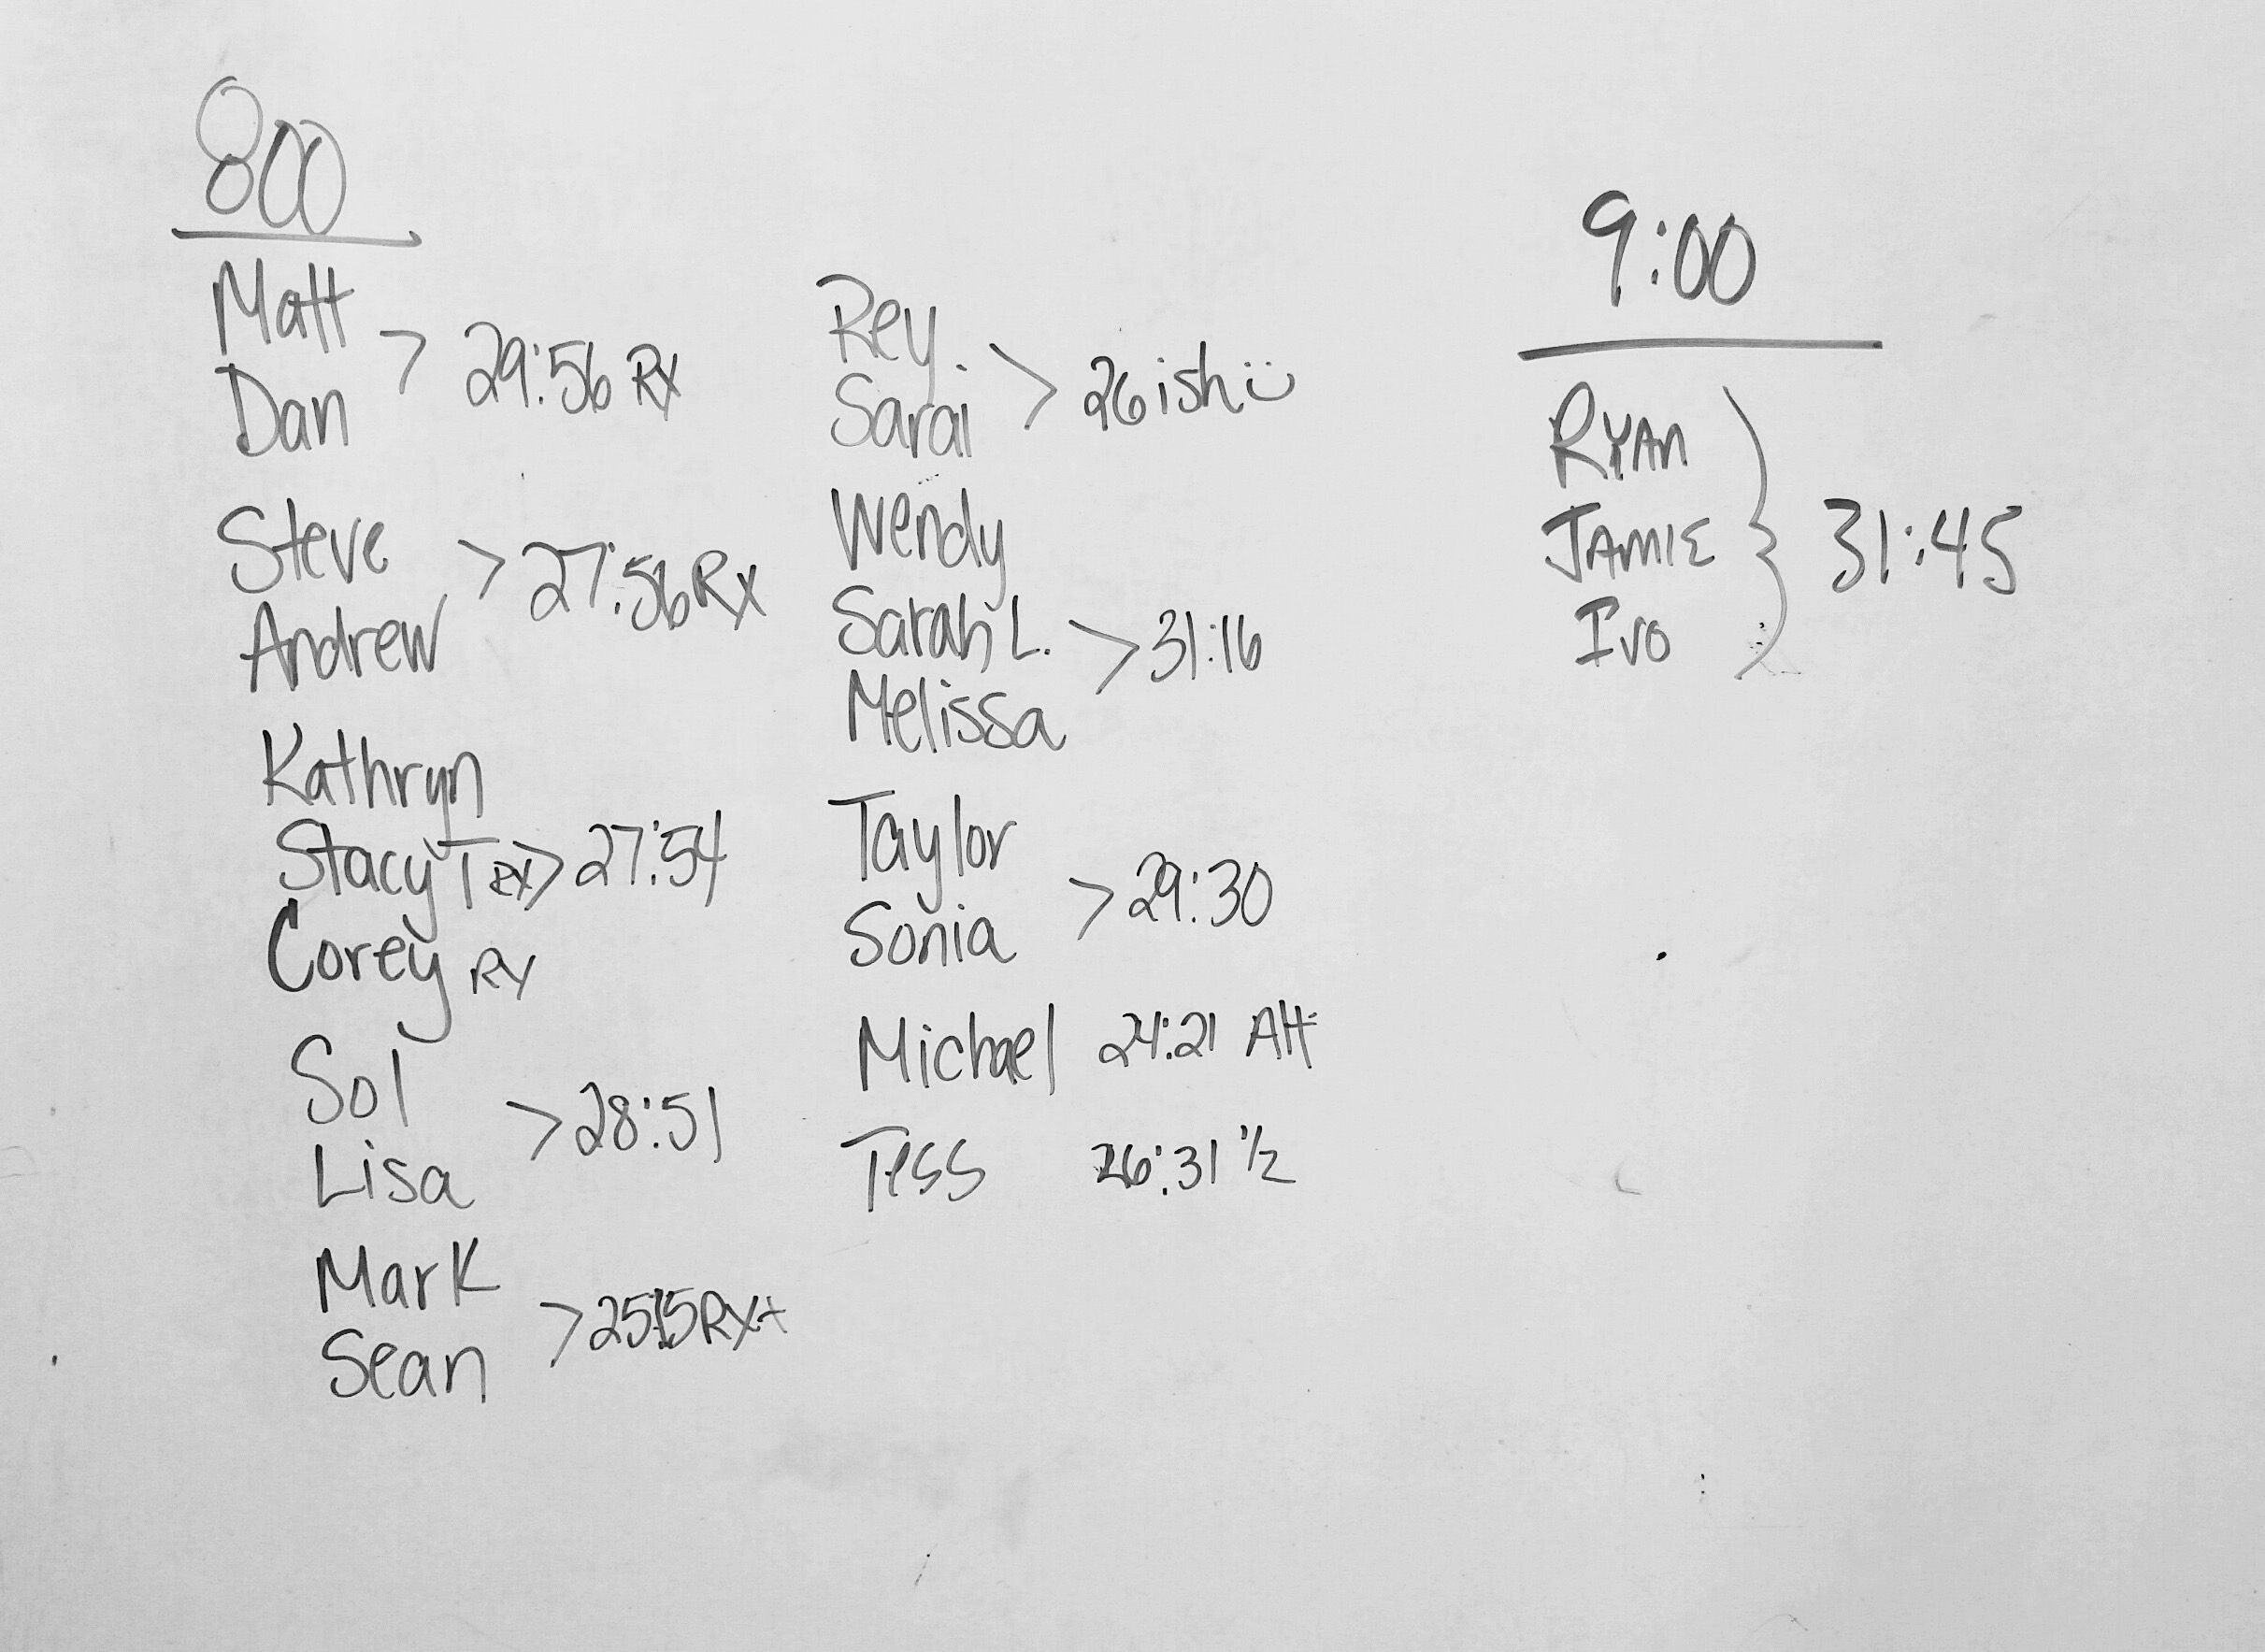 800
Matt
Dan
> 29:56 Rx
Steve
Andrew
> 27:56 Rx
Kathryn
Stacy T RX > 27:54
Corey RX
Sol
Lisa
> 28:51
Mark
Sean
> 25:15 RX+
Rey
Sarai
> 26ish :)
Wendy
Sarah L.
Melissa
> 31:16
Taylor
Sonia
> 29:30
Michael 24:21 Alt
Tess 26:31 1/2
9:00
RYAN
JAMIE
IVO
} 31:45